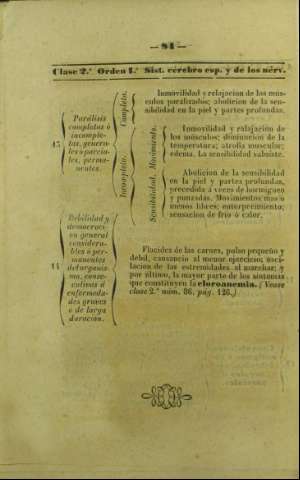 — 84 —
Clase 2.ª Orden 1.º Sist. cérebro esp. y de los nérv.
13
Parálisis
completas ó
incomple-
tas, genera-
les ó parcia-
les, perma-
nentes.
Completa.
Inmovilidad y relajacion de los mús-
culos paralizados; abolicion de la sen-
sibilidad en la piel y partes profundas.
Incompleta.
Movimiento.
Inmovilidad y relajación de
los músculos; diminucion de la
temperatura; atrofia muscular;
edema. La sensibilidad subsiste.
Sensibilidad.
Abolicion de la sensibilidad
en la piel y partes profundas,
precedida á veces de hormigueo
y punzadas. Movimientos mas ó
menos libres; entorpecimiento;
sensacion de frio ó calor.
14
Debilidad y
demacraci-
on general
considera-
bles ó per-
manentes
del organis-
mo, conse-
cutivas á
enfermeda-
des graves
ó de larga
duracion.
Flacidez de las carnes, pulso pequeño y
debil, cansancio al menor ejercicio; osci-
lacion de las estremidades al marchar; y
por último, la mayor parte de los síntomas
que constituyen la cloroanemia. (Vease
clase 2.ª núm. 86, pág. 126.)